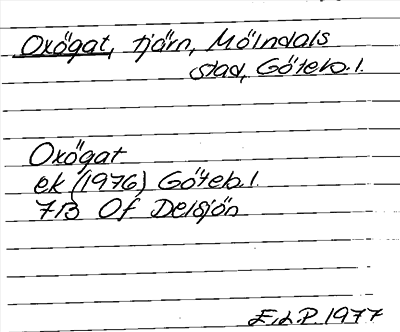 Oxögat, tjärn, Mölndals
stad, Göteb. l.
Oxögat
ek (1976) Göteb. l.
7B Of Delsjön
E.L.P 1977